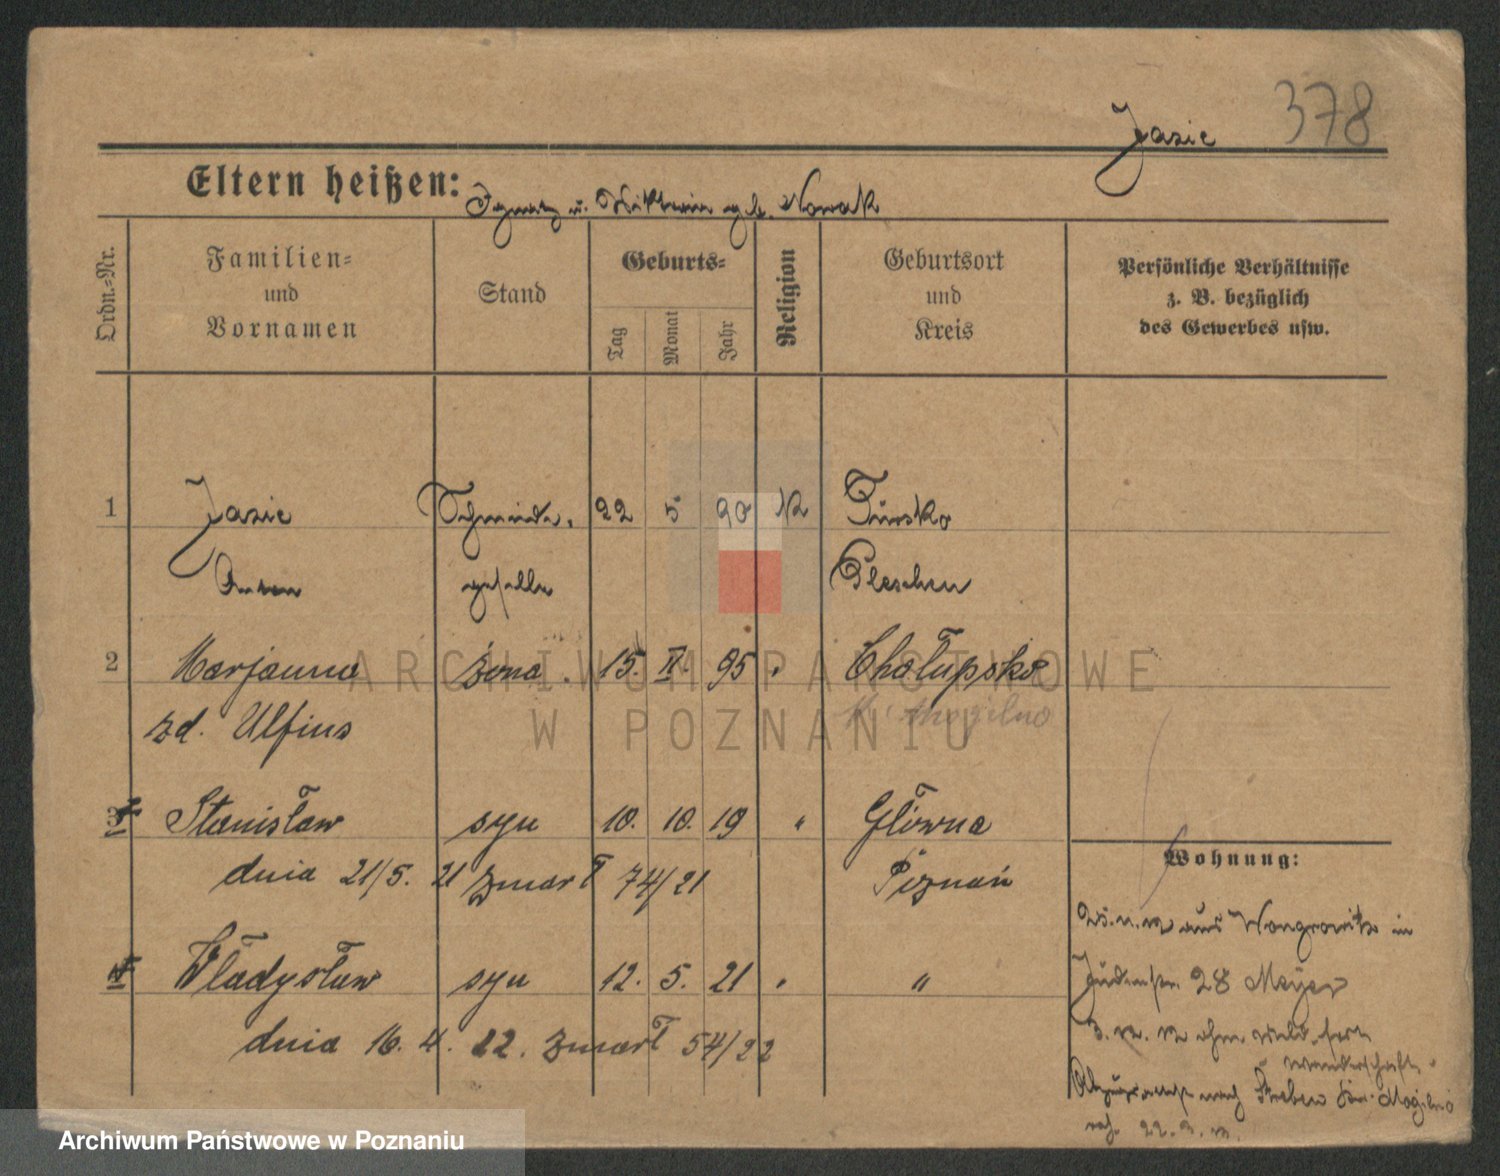 Jasic 378
Eltern heißen: Ignatz u. Viktoria geb. Nowak
Ordn.-Nr.
Familien- und Vornamen
Stand
Geburts-
Tag Monat Jahr
Religion
Geburtsort und Kreis
Persönliche Verhältnisse
z. B. bezüglich
des Gewerbes usw.
1 Jasic Schmiede- 22 5 90 K Tursko
Anton geselle Pleschen
2 Marjanna żona 15. II. 95 " Chałupska
zd. Ulfius Mogilno
3 Stanisław syn 10. 10. 19 " Główna
dnia 21/5. 21 zmarł 74/21 Poznań
4 Władysław syn 12. 5. 21 " "
dnia 16. 4. 22. zmarł 54/22
Wohnung:
aus Wongrowitz in
Judenstr. 28 Meyer
wanderschaft
nach Mogilno
ARCHIWUM PAŃSTWOWE
W POZNANIU
Archiwum Państwowe w Poznaniu